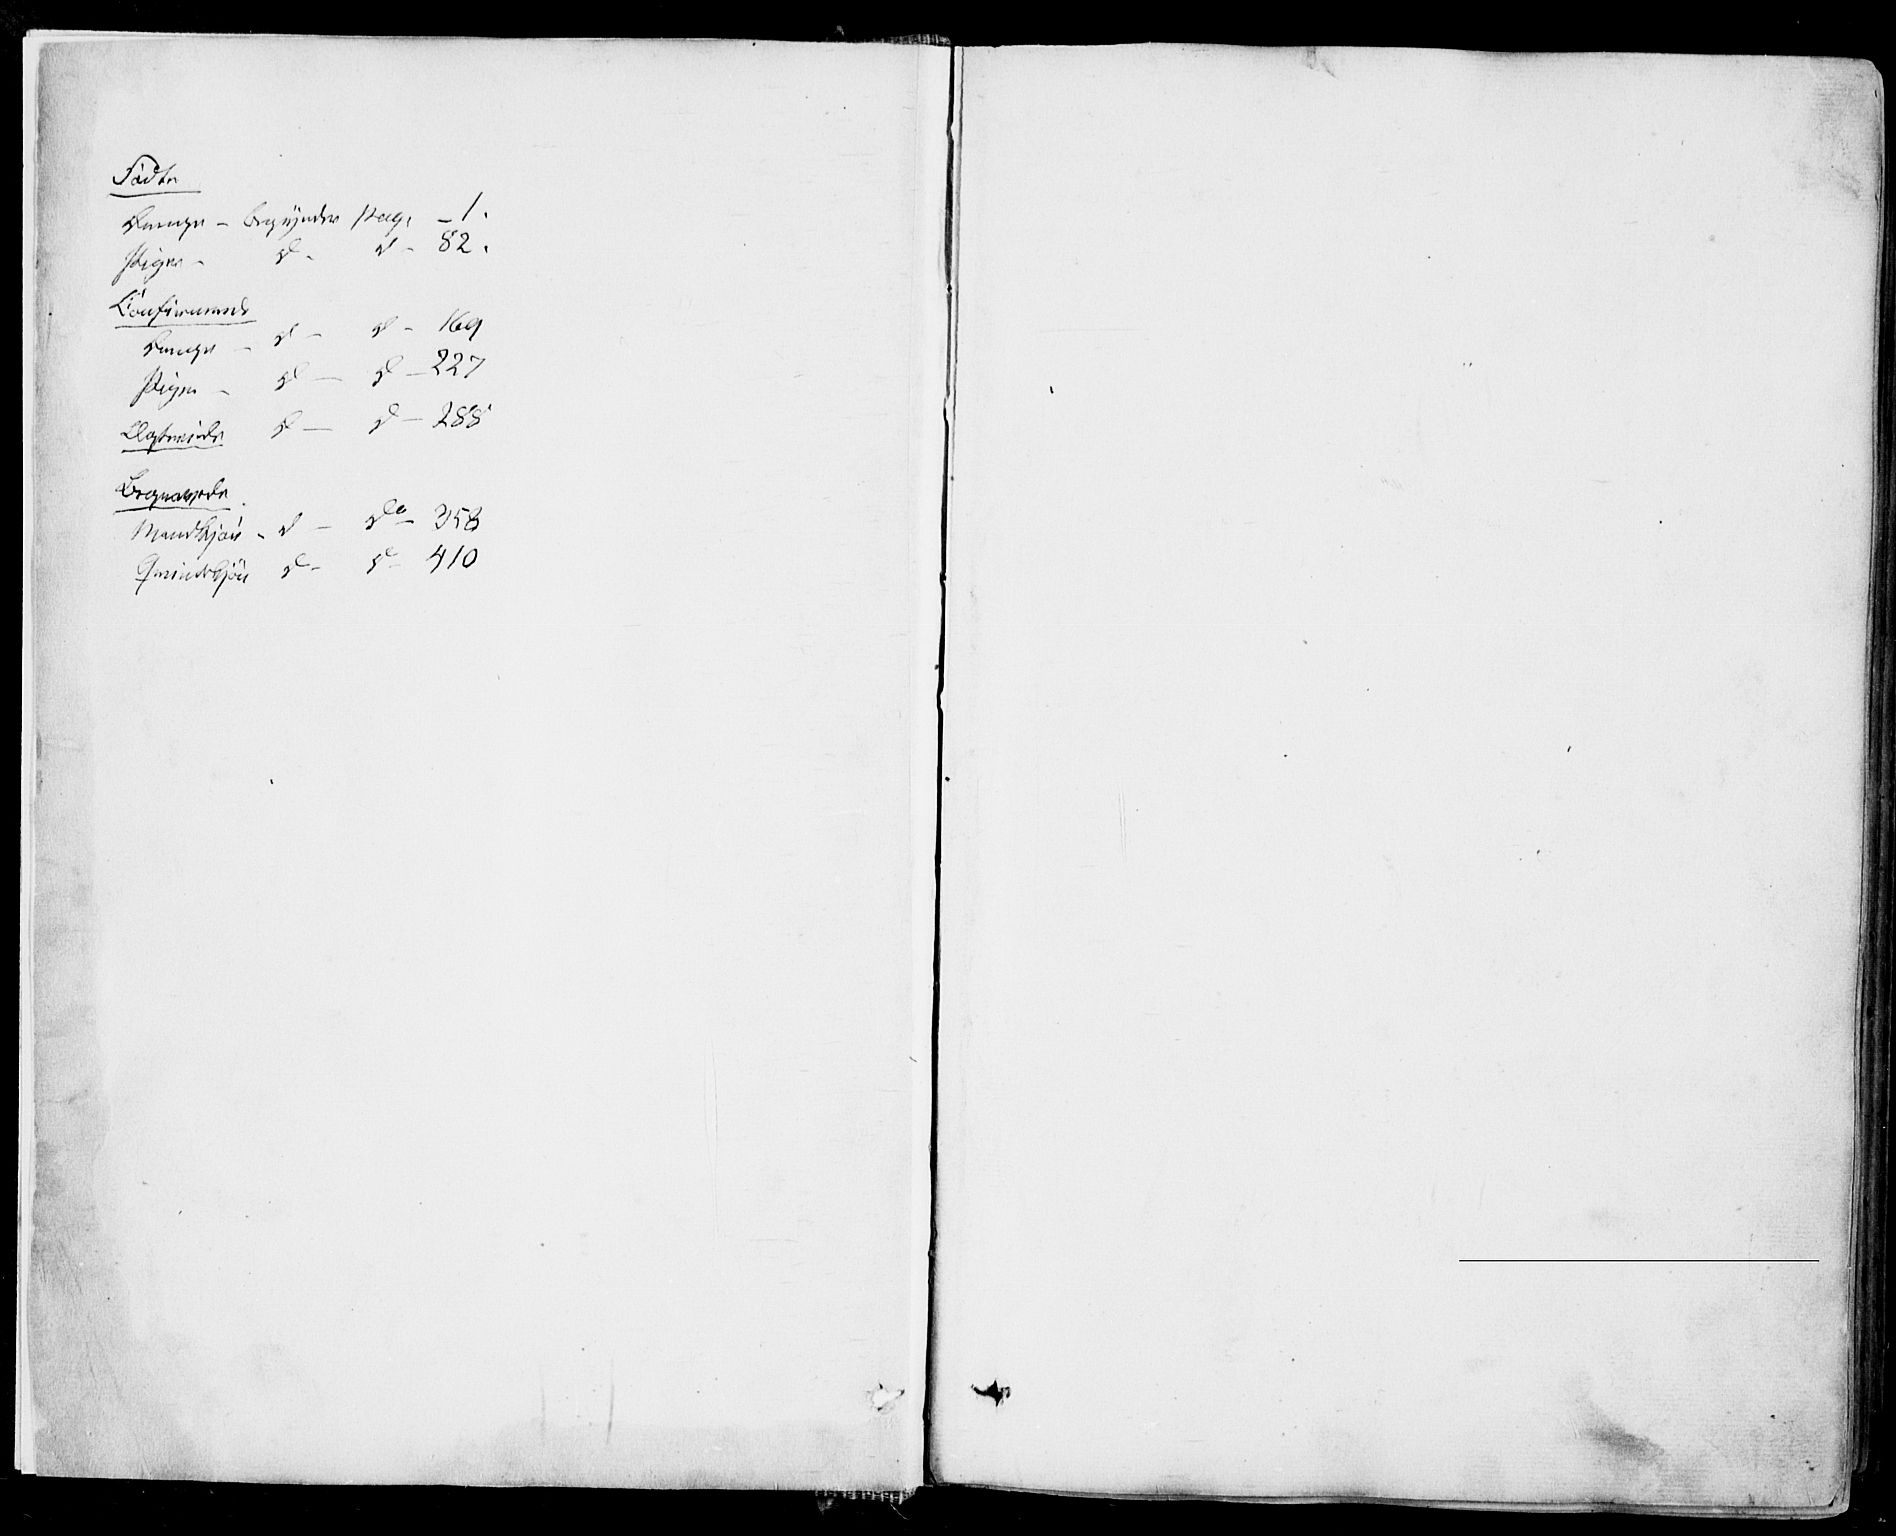 Födte
Drenge – begynder pag. – 1.
Piger – d – d – 82.
Confirmerede
Drenge – d – d – 169
Piger – d – d – 227
Ægteviede d – d – 288
Begravede
Mandkjön – d – do – 358
Qvindekjön d – d – 410